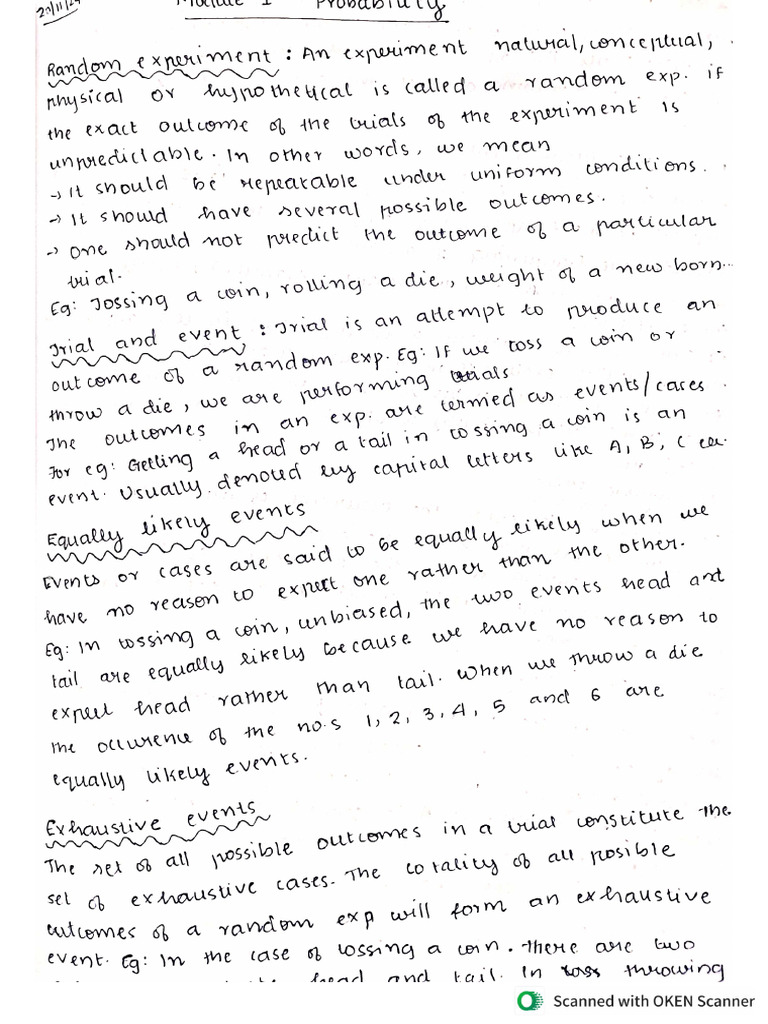 20/11/24 Module 1 Probability
Random experiment : An experiment natural, conceptual,
physical or hypothetical is called a random exp. if
the exact outcome of the trials of the experiment is
unpredictable. In other words, we mean
→ It should be repeatable under uniform conditions.
→ It should have several possible outcomes.
→ One should not predict the outcome of a particular
trial.
Eg: Tossing a coin, rolling a die, weight of a new born...
Trial and event : Trial is an attempt to produce an
outcome of a random exp. Eg: If we toss a coin or
throw a die, we are performing trials
The outcomes in an exp. are termied as events/cases
For eg: Getting a head or a tail in tossing a coin is an
event. Usually denoted by capital letters like A, B, C etc.
Equally likely events
Events or cases are said to be equally likely when we
have no reason to expect one rather than the other.
Eg: In tossing a coin, unbiased, the two events head and
tail are equally likely because we have no reason to
expect head rather than tail. When we throw a die
the occurence of the no.s 1, 2, 3, 4, 5 and 6 are
equally likely events.
Exhaustive events
The set of all possible outcomes in a trial constitute the
set of exhaustive cases. The totality of all posible
outcomes of a random exp will form an exhaustive
event. Eg: In the case of tossing a coin. There are two
head and tail. In throwing
Scanned with OKEN Scanner